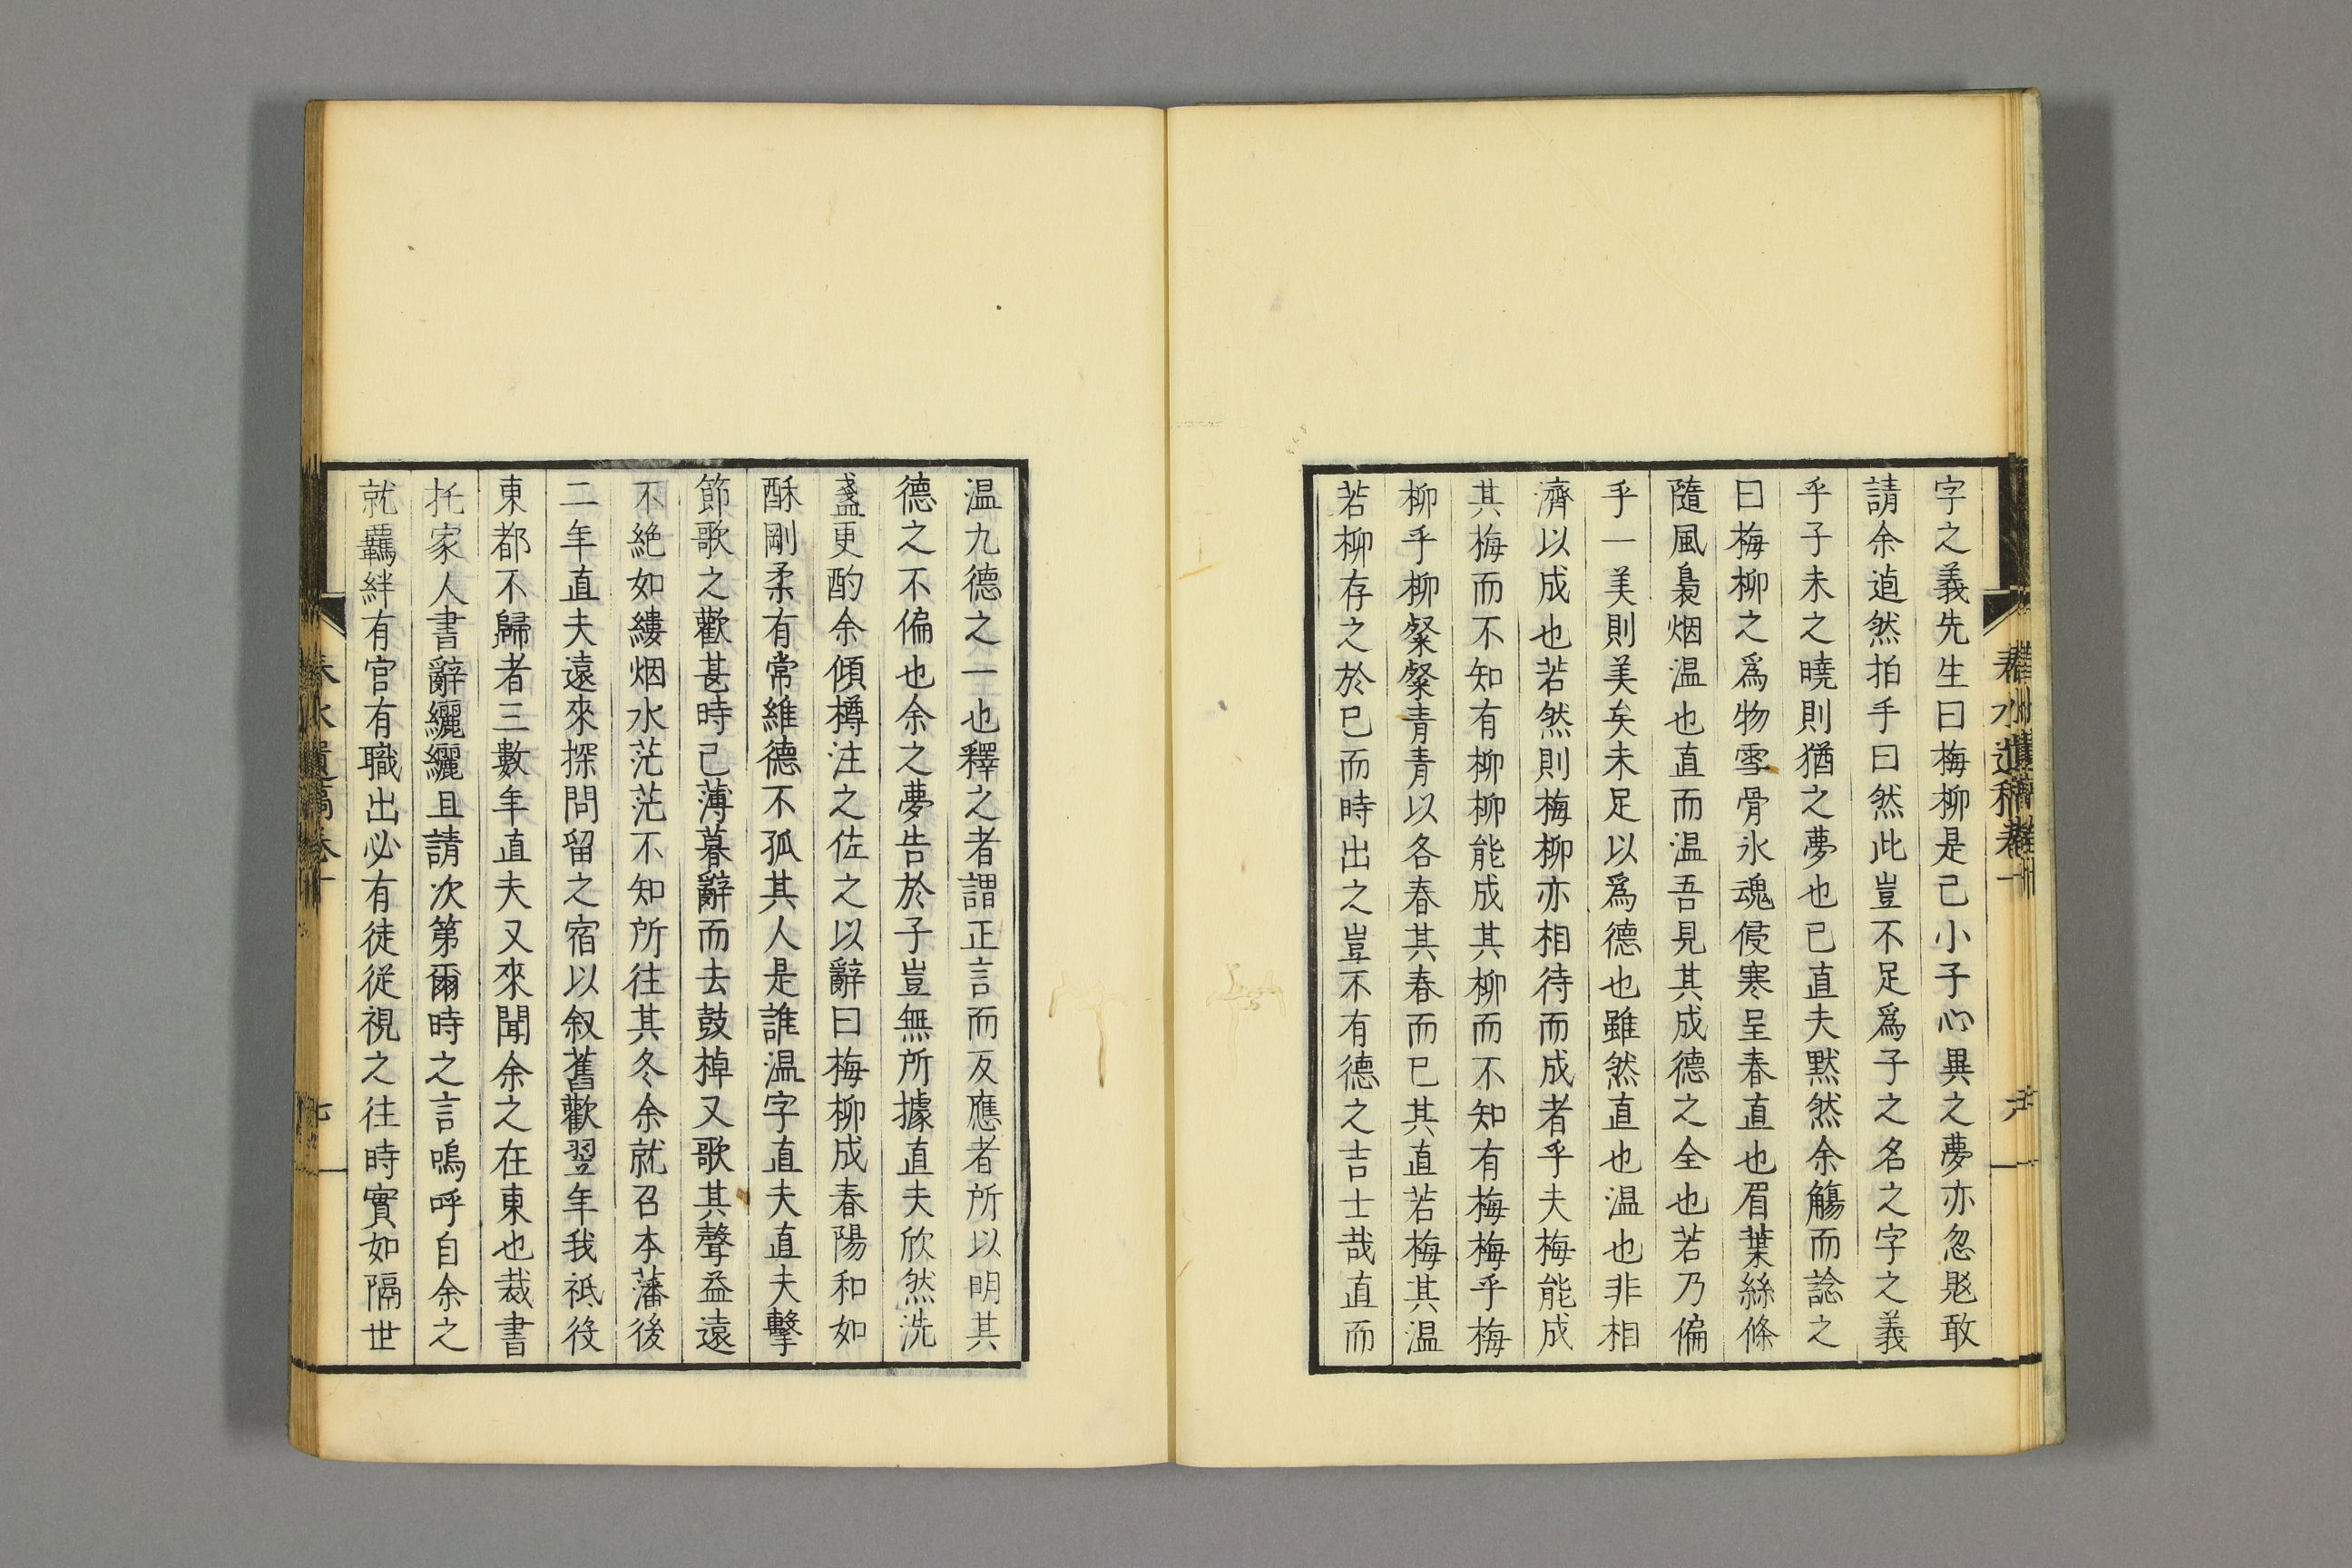 字之義先生曰梅柳是已小子心異之夢亦忽寤敢
請余逌然拍手曰然此豈不足爲子之名之字之義
乎子未之曉則猶之夢也已直夫默然余觴而諗之
曰梅柳之爲物雪骨氷魂侵寒呈春直也眉葉絲條
隨風裊烟温也直而温吾見其成德之全也若乃偏
乎一美則美矣未足以爲德也雖然直也温也非相
濟以成也若然則梅柳亦相待而成者乎夫梅能成
其梅而不知有柳柳能成其柳而不知有梅梅乎梅
柳乎柳粲粲青青以各春其春而已其直若梅其温
若柳存之於已而時出之豈不有德之吉士哉直而
温九德之一也釋之者謂正言而反應者所以明其
德之不偏也余之夢告於子豈無所據直夫欣然洗
盞更酌余傾樽注之佐之以辭曰梅柳成春陽和如
酥剛柔有常維德不孤其人是誰温字直夫直夫擊
節歌之歡甚時已薄暮辭而去鼓棹又歌其聲益遠
不絶如縷烟水茫茫不知所往其冬余就召本藩後
二年直夫遠來探問留之宿以叙舊歡翌年我祗役
東都不歸者三數年直夫又來聞余之在東也裁書
托家人書辭纚纚且請次第爾時之言嗚呼自余之
就羈絆有官有職出必有徒從視之往時實如隔世
春水遺稿卷十
七